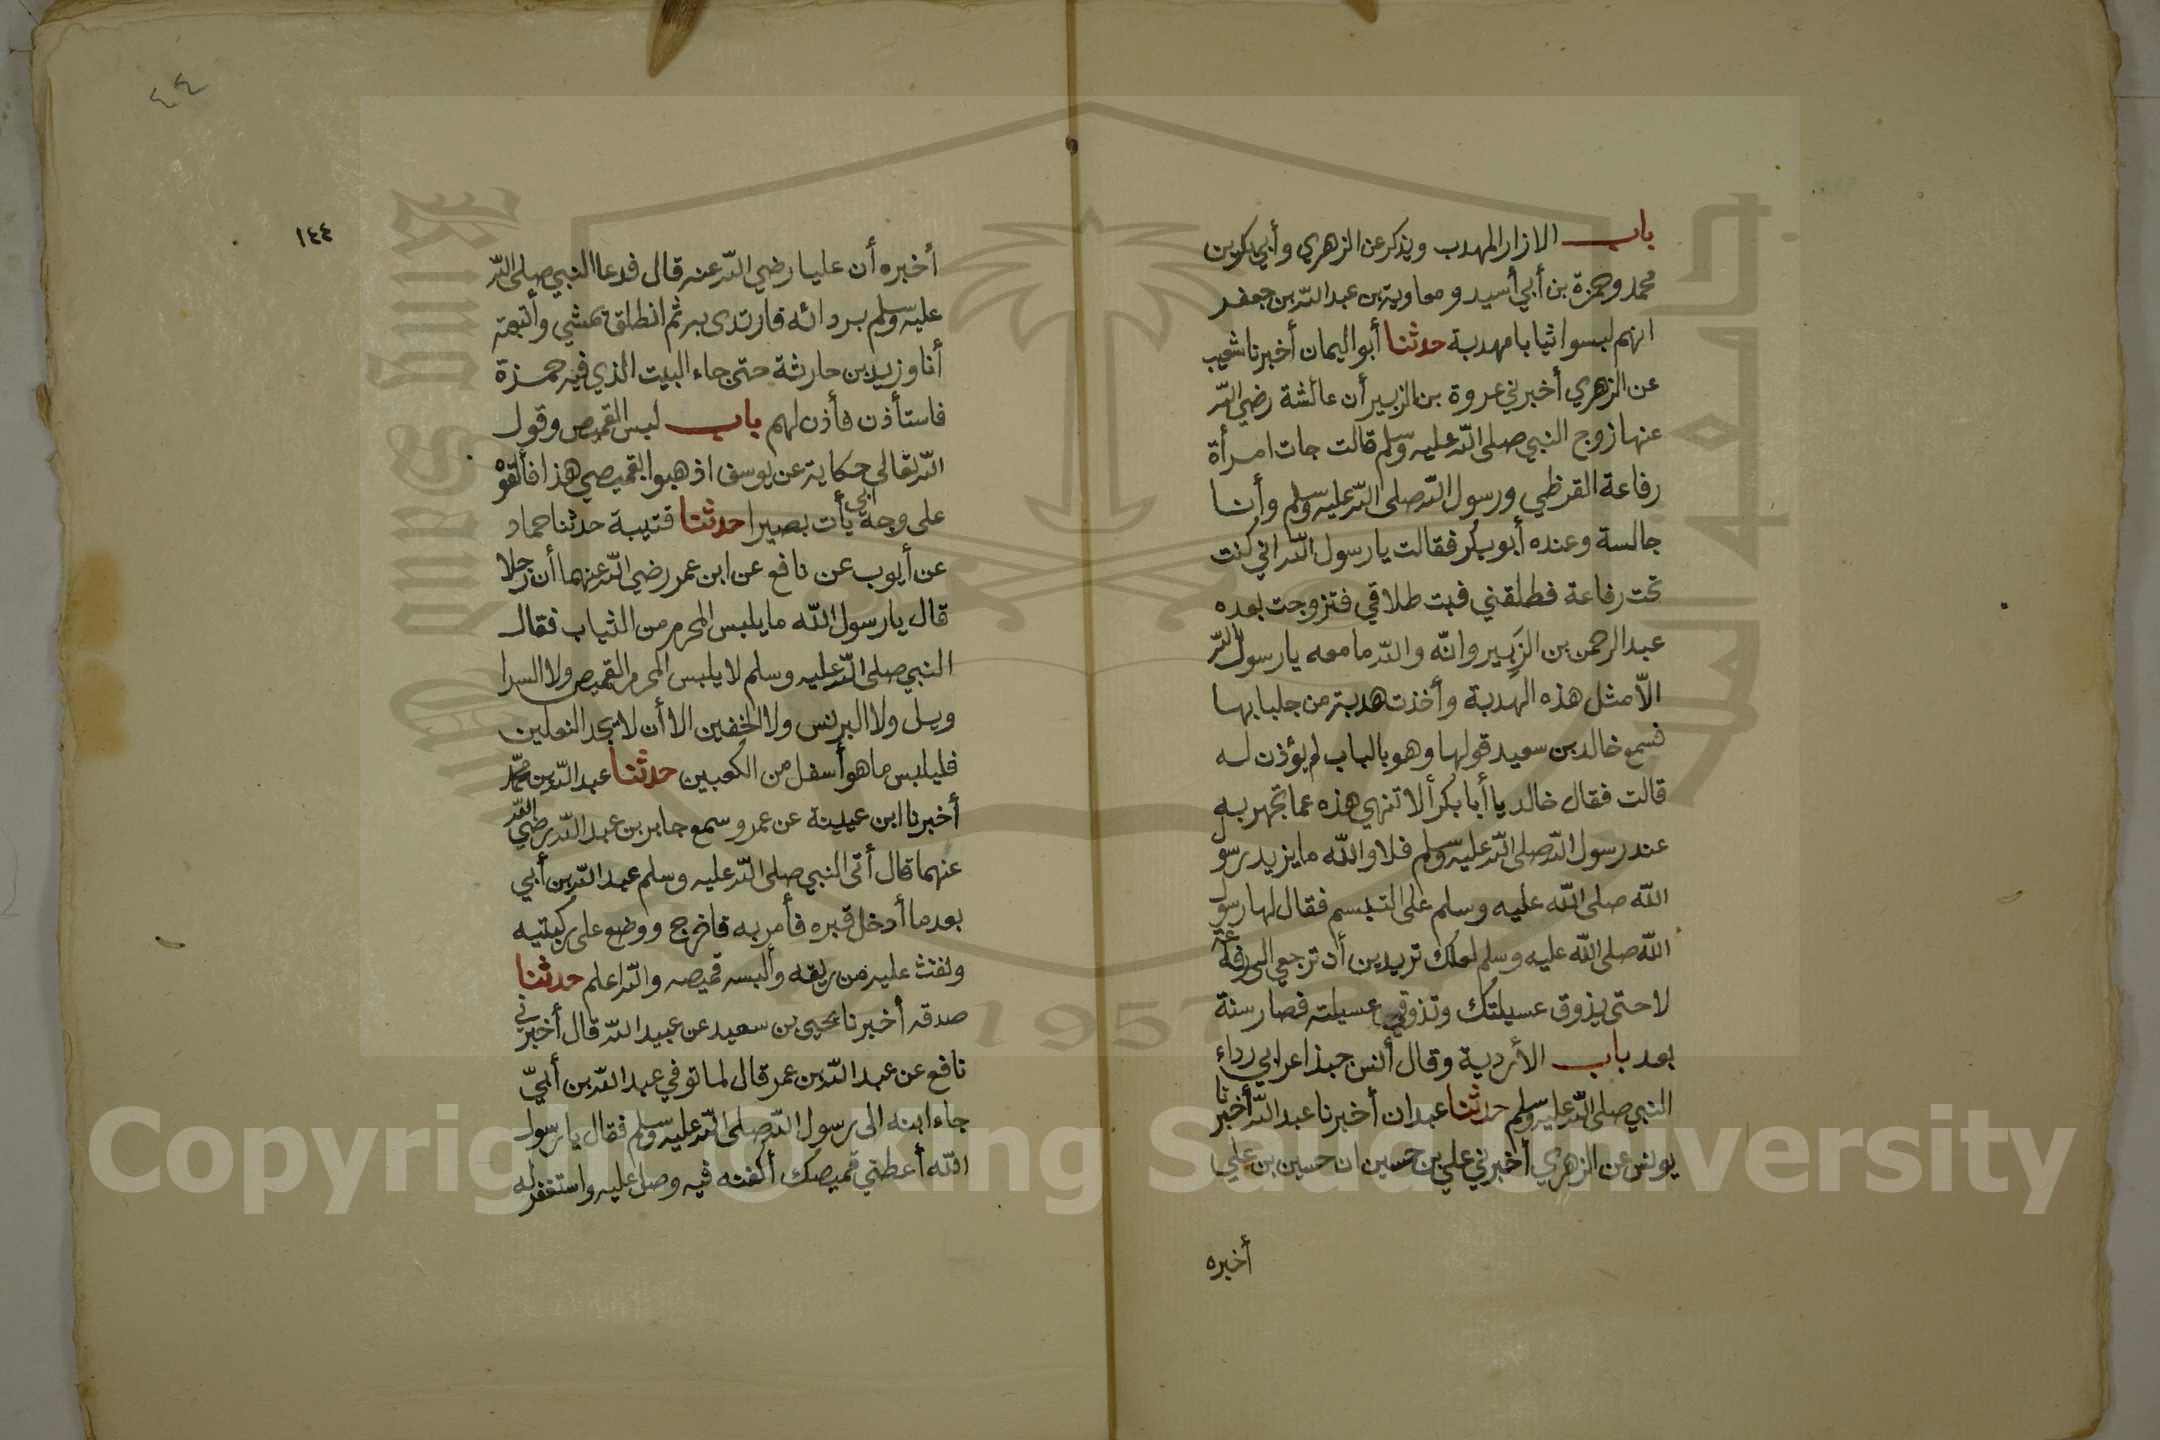 باب الازار المهدب ويذكر عن الزهري وأبي بكر بن
محمد وحمزة بن أبي أسيد ومعاوية بن عبد الله بن جعفر
انهم لبسوا ثيابا مهدبة حدثنا أبو اليمان أخبرنا شعيب
عن الزهري أخبرني عروة بن الزبير أن عائشة رضي الله
عنها زوج النبي صلى الله عليه وسلم قالت جات امرأة
رفاعة القرظي ورسول الله صلى الله عليه وسلم وأنا
جالسة وعنده أبو بكر فقالت يا رسول الله اني كنت
تحت رفاعة فطلقني فبت طلاقي فتزوجت بعده
عبد الرحمن بن الزَبِير وانّه والله ما معه يا رسول الله
الاّ مثل هذه الهدبة وأخذت هدبة من جلبابها
فسمع خالد بن سعيد قولها وهو بالباب لم يؤذن له
قالت فقال خالد يا أبا بكر ألا تنهي هذه عما تجهر به
عند رسول الله صلى الله عليه وسلم فلا والله ما يزيد رسول
الله صلى الله عليه وسلم على التبسم فقال لها رسول
الله صلى الله عليه وسلم لعلك تريدين أن ترجعي الى رفاعة
لا حتى يذوق عسيلتك وتذوقي عسيلته فصار سنة
بعد باب الأردية وقال أنس جبذ اعرابي رداء
النبي صلى الله عليه وسلم حدثنا عبدان أخبرنا عبد الله أخبرنا
يونس عن الزهري أخبرني علي بن حسين ان حسين بن علي
أخبره
٤٤
١٤٤
أخبره أن عليا رضي الله عنه قال فدعا النبي صلى الله
عليه وسلم بردائه فارتدى به ثم انطلق يمشي وأتبعته
أنا وزيد بن حارثة حتى جاء البيت الذي فيه حمزة
فاستأذن فأذن لهم باب لبس القميص وقول
الله تعالى حكاية عن يوسف اذهبوا بقميصي هذا فألقوه
على وجه أبي يأت بصيرا حدثنا قتيبة حدثنا حماد
عن أيوب عن نافع عن ابن عمر رضي الله عنهما أن رجلا
قال يا رسول الله ما يلبس المحرم من الثياب فقال
النبي صلى الله عليه وسلم لا يلبس المحرم القميص ولا السرا
ويل ولا البرنس ولا الخفين الا أن لا يجد النعلين
فليلبس ما هو أسفل من الكعبين حدثنا عبد الله بن محمد
أخبرنا ابن عيينة عن عمرو سمع جابر بن عبد الله رضي الله
عنهما قال أتى النبي صلى الله عليه وسلم عبد الله بن أبي
بعد ما أدخل قبره فأمر به فاخرج ووضع على ركبتيه
ونفث عليه من ريقه وألبسه قميصه والله اعلم حدثنا
صدقه أخبرنا يحيى بن سعيد عن عبيد الله قال أخبرني
نافع عن عبد الله بن عمر قال لما توفي عبد الله بن أبيّ
جاء ابنه الى رسول الله صلى الله عليه وسلم فقال يا رسول
الله أعطني قميصك أكفنه فيه وصل عليه واستغفر له
1957
Copyright © King Saud University